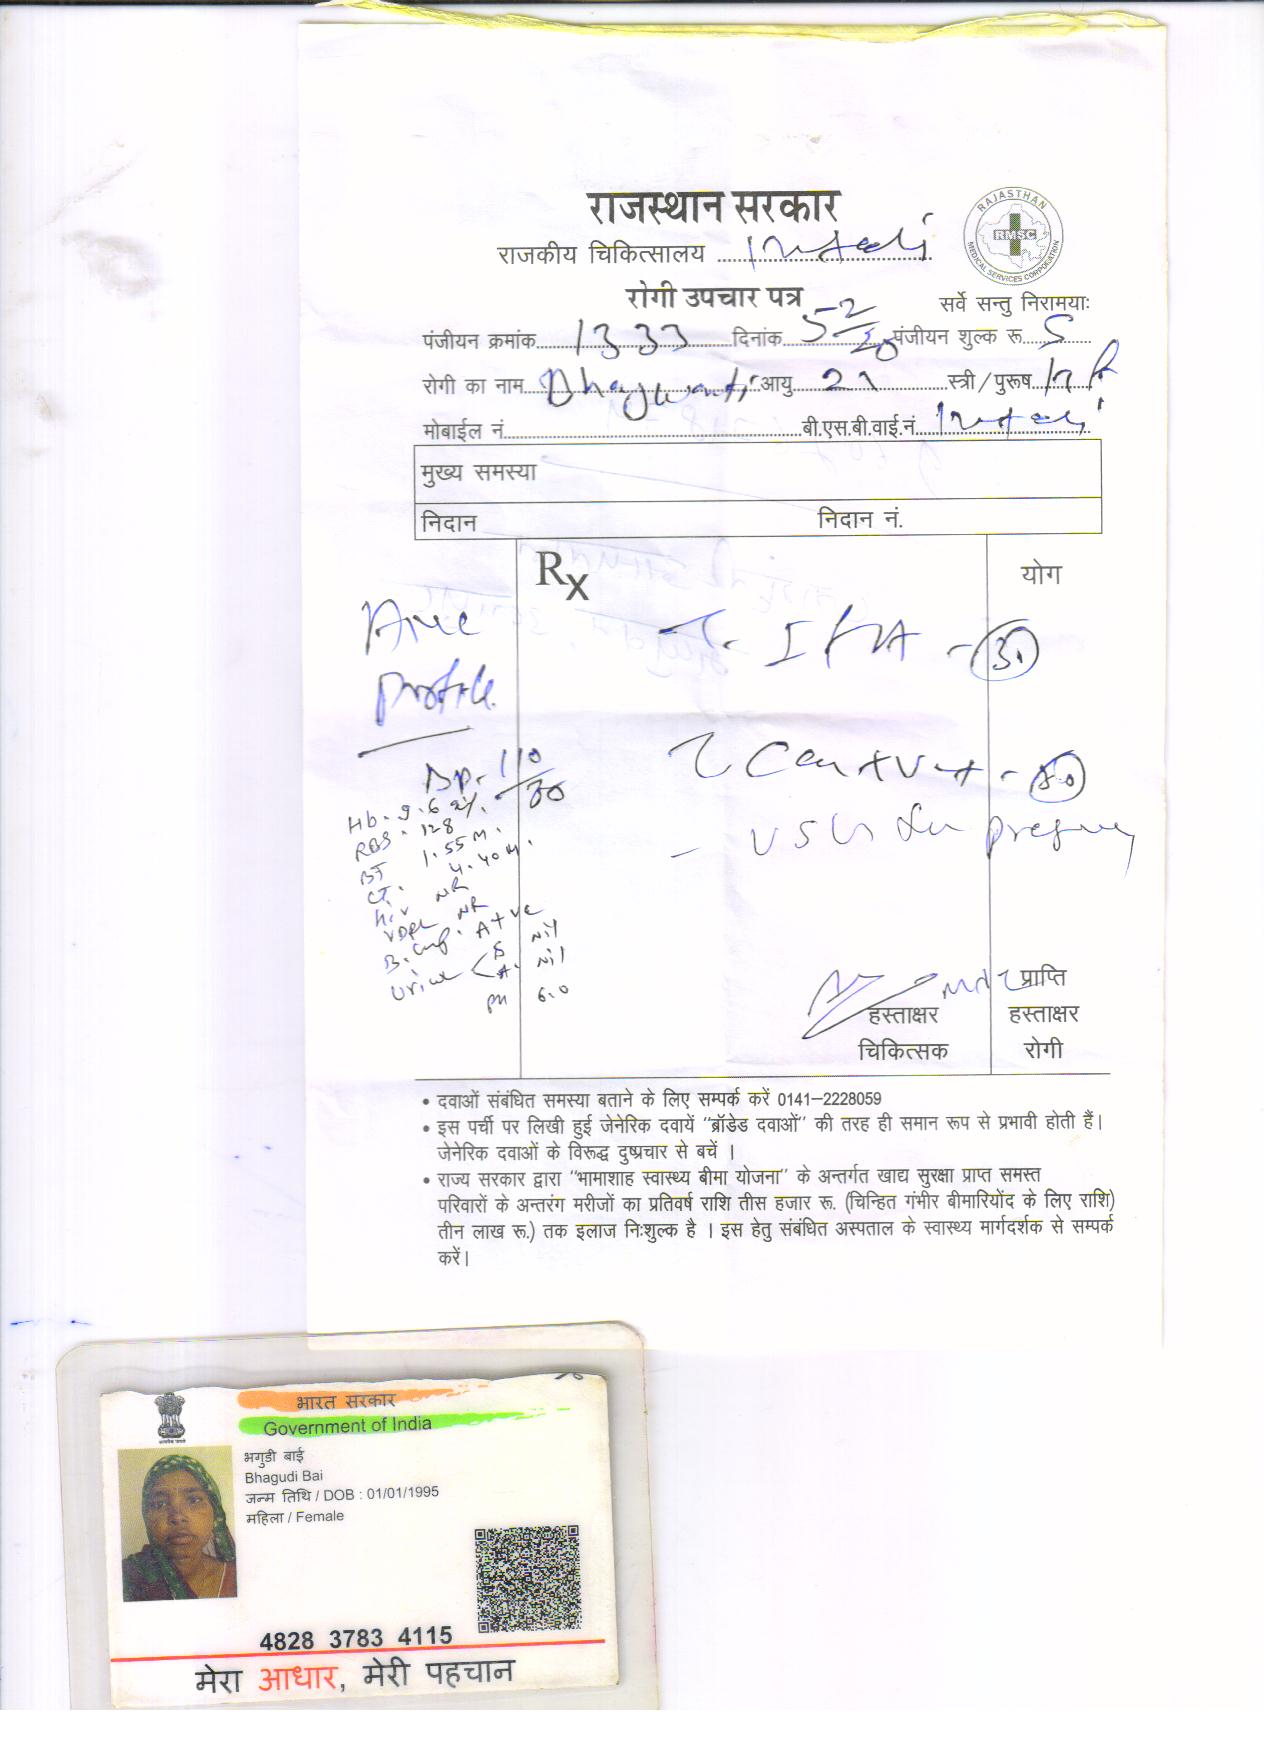 राजस्थान सरकार
राजकीय चिकित्सालय
RAJASTHAN
RMSC
MEDICAL SERVICES CORPORATION
रोगी उपचार पत्र
सर्वे सन्तु निरामयाः
पंजीयन क्रमांक 1333 दिनांक 5-2/20 पंजीयन शुल्क रू. 5
रोगी का नाम Bhagwanti आयु स्त्री/पुरूष
मोबाईल नं. बी.एस.बी.वाई.नं.
मुख्य समस्या
निदान निदान नं.
Rx योग
Profile
T. IFA - 30
BP. 110/
Hb. 9.6 %.
RBS. 128
BT 1.55 M.
CT. 4.40 M.
Hiv NR
VDRL NR
A+ve
Urine S Nil
A. Nil
PH 6.0
USG
प्राप्ति
हस्ताक्षर हस्ताक्षर
चिकित्सक रोगी
• दवाओं संबंधित समस्या बताने के लिए सम्पर्क करें 0141–2228059
• इस पर्ची पर लिखी हुई जेनेरिक दवायें "ब्रॉडेड दवाओं" की तरह ही समान रूप से प्रभावी होती हैं।
जेनेरिक दवाओं के विरूद्ध दुष्प्रचार से बचें ।
• राज्य सरकार द्वारा "भामाशाह स्वास्थ्य बीमा योजना" के अन्तर्गत खाद्य सुरक्षा प्राप्त समस्त
परिवारों के अन्तरंग मरीजों का प्रतिवर्ष राशि तीस हजार रू. (चिन्हित गंभीर बीमारियोंद के लिए राशि)
तीन लाख रू.) तक इलाज निःशुल्क है । इस हेतु संबंधित अस्पताल के स्वास्थ्य मार्गदर्शक से सम्पर्क
करें।
भारत सरकार
Government of India
भगुडी बाई
Bhagudi Bai
जन्म तिथि / DOB : 01/01/1995
महिला / Female
4828 3783 4115
मेरा आधार, मेरी पहचान